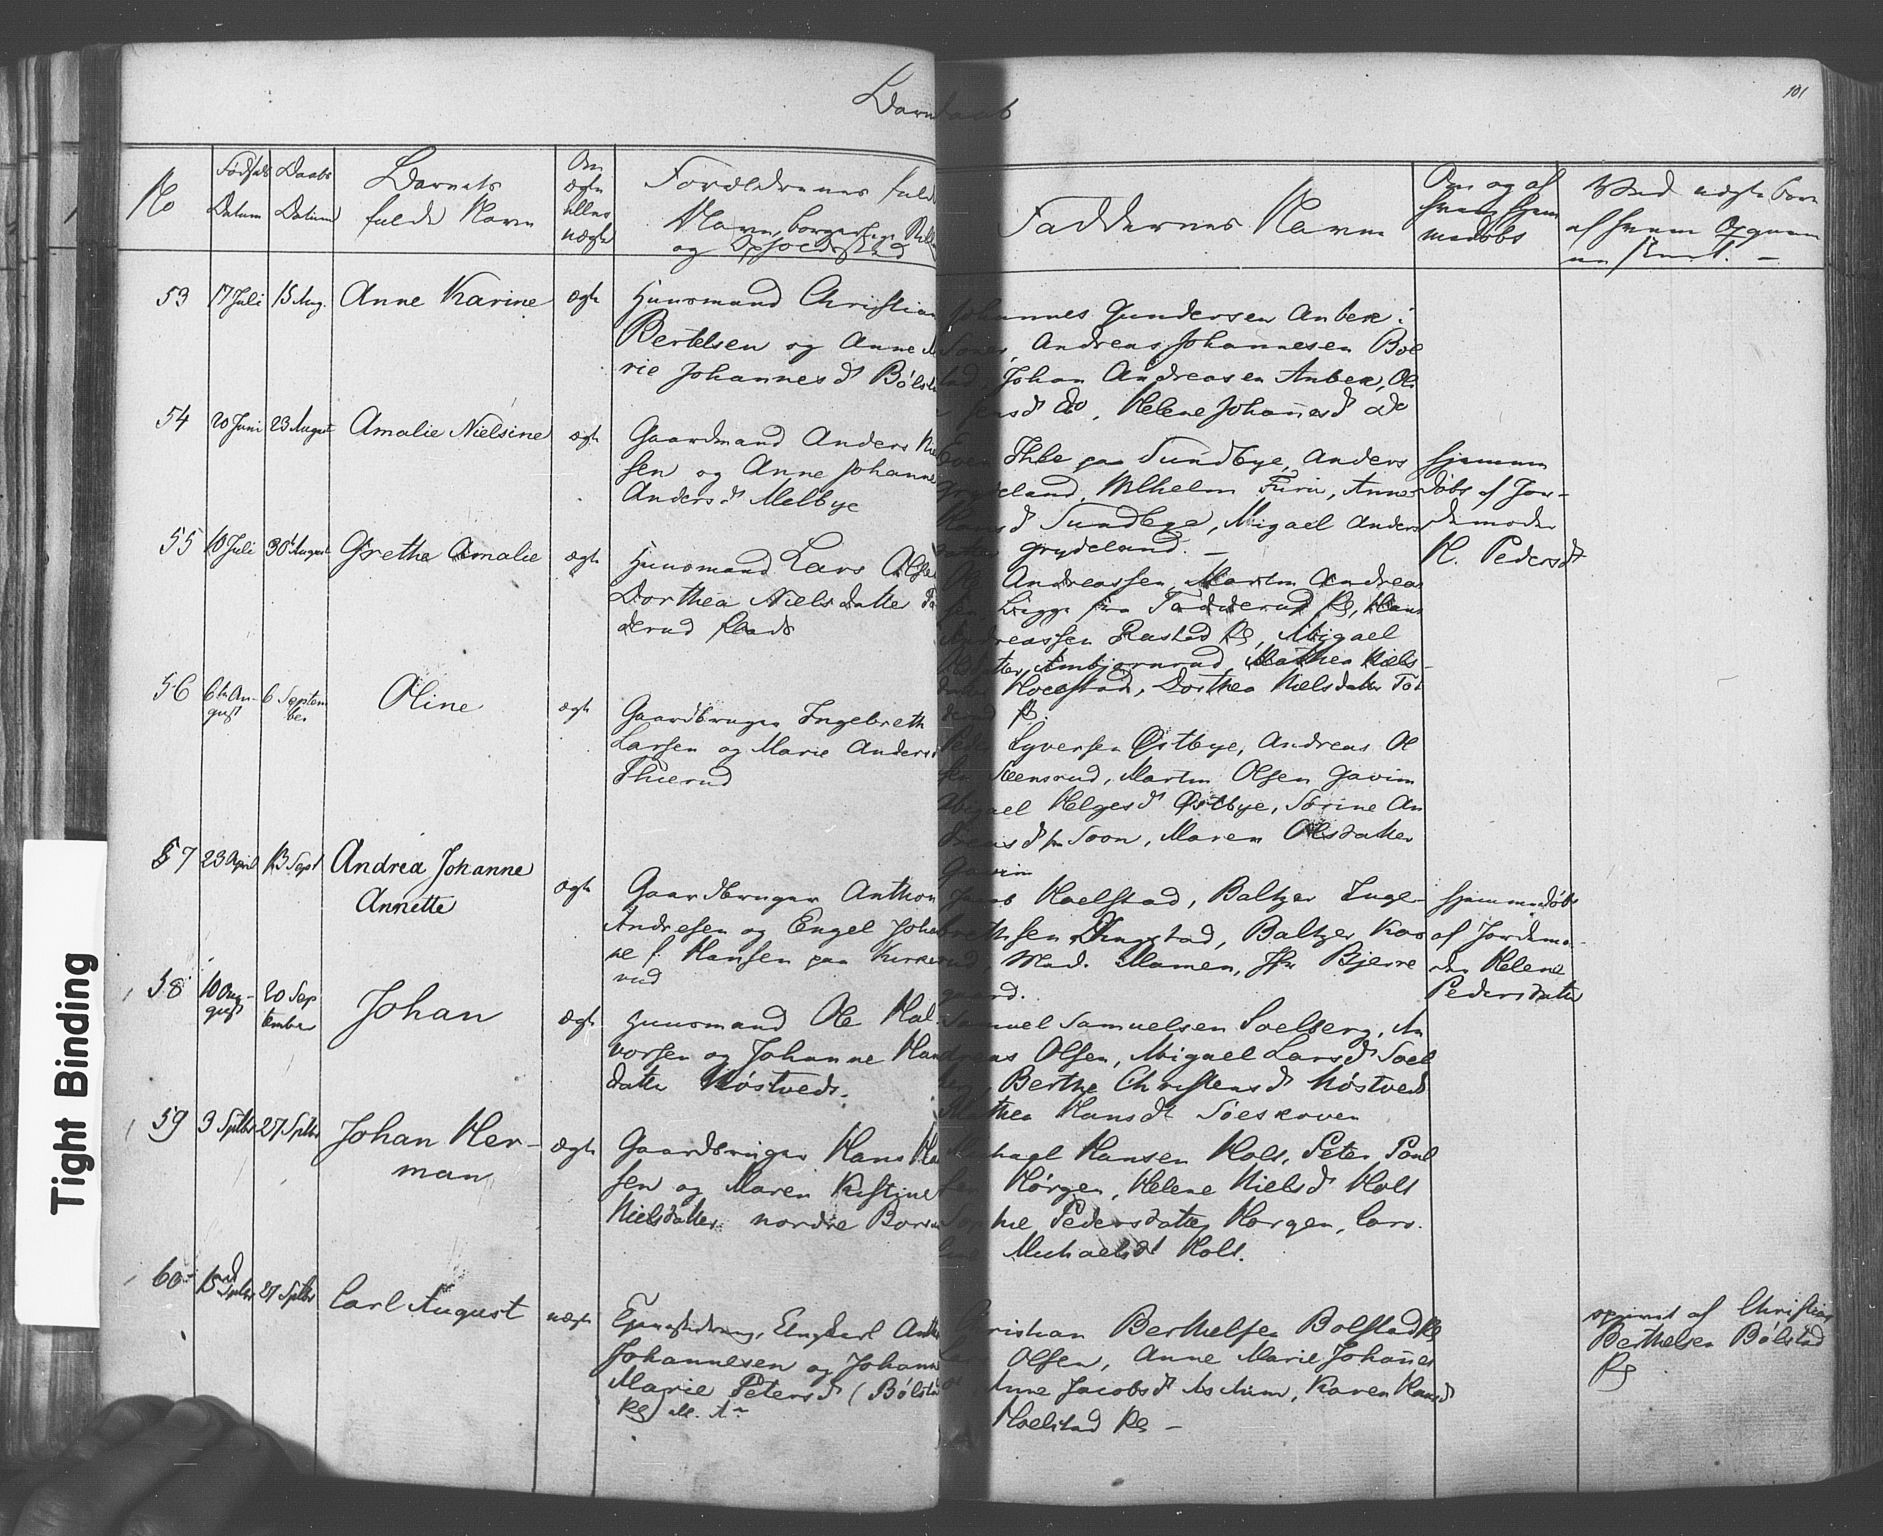 Barnedaab
101
No
Fødsels Datum
Daabs Datum
Barnets fulde Navn
Om ægte eller uægte
Forældrenes fulde Navn, borgerlige
og Opholdssted
Faddernes Navne
Om og af hvem hjemmedøbt
Ved uægte Børn af hvem Opgaven
53 17 Juli 15 Aug. Anne Karine ægte
Huusmand Christian
Bertelsen og Anne Ma
rie Johannesd Bølsta
Johannes Gundersen Anbek i
Soner, Andreas Johannesen Bol
stad, Johan Andreasen Anbek, Ol
Jensd do, Helene Johannesd do
54 20 Juni 23 August Amalie Nielsine ægte
Gaardmand Anders Niel
sen og Anne Johanne
Andersd Melbye
Even paa Sundbye, Anders
Grydeland, Wilhelm Furu, Anne
Hansd Sundbye, Abigael Anders
datter Grydeland. —
hjemme
døbt af Jor-
demoder
H. Pedersd
55 10 Juli 30 August Grethe Amalie ægte
Huusmand Lars Olsen
Dorthea Nielsdatter Tad
derud
Ole Andreassen, Martin Andreas
sen fra Tadderud , Hans
Andreassen Rustad , Abigael
Olsdatter Ambjørnrud, Mathea Niels-
datter Hoelstad, Dorthea Nielsdatter Tad
derud
56 6te Au-
gust 6 Septem
ber Oline ægte
Gaardbruger Ingebreth
Larsen og Marie Andersd
Thuerud
Peder Syversen Østbye, Andreas Ol
sen Steensrud, Martin Olsen Gavim
Abigael Helgesd Østbye, Sørine An
dreasd fra Soon, Maren Olsdatter
Gavim
57 23 April 13 Sept Andrea Johanne
Annette ægte
Gaardbruger Anthon
Andresen og Engel Johan
ne f. Hansen paa Kirkerud
Jacob Hoelstad, Baltzer Inge-
brethsen , Baltzer
Mad. Mamen, Jfr Bjerre
gaard.
hjemmedøbt
af Jordemo-
der Helene
Pedersdatter
58 10 Au-
gust 20 Sep
tember Johan ægte
Huusmand Ole Hal-
vorsen og Johanne Hans
datter Nøstvedt.
Samuel Samuelsen Soelberg, An
dreas Olsen, Abigael Larsd Soel
berg, Berthe Christensd Nøstvedt
Mathea Hansd Søeskoven
59 3 Sptbr 27 Sptbr Johan Her-
man ægte
Gaardbruger Hans Han
sen og Maren Kistine
Nielsdatter nordre
Michael Hansen Holt, Peter Poul
sen Hørgen, Helene Nielsd Holt
Sophie Pedersdatter Horgen, Caro-
line Michaelsd Holt.
60 15 Sptbr 27 Sptbr Carl August uægte
Ungkarl Anthon
Johannesen og Johanne
Marie Petersd (Bølstad
Christian Berthelsen Bolstad
Lars Olsen, Anne Marie Johannes
d Anne Jacobsd , Karen Hansd
Hoelstad —
opgivet af Christian
Berthelsen Bølstad
Tight Binding